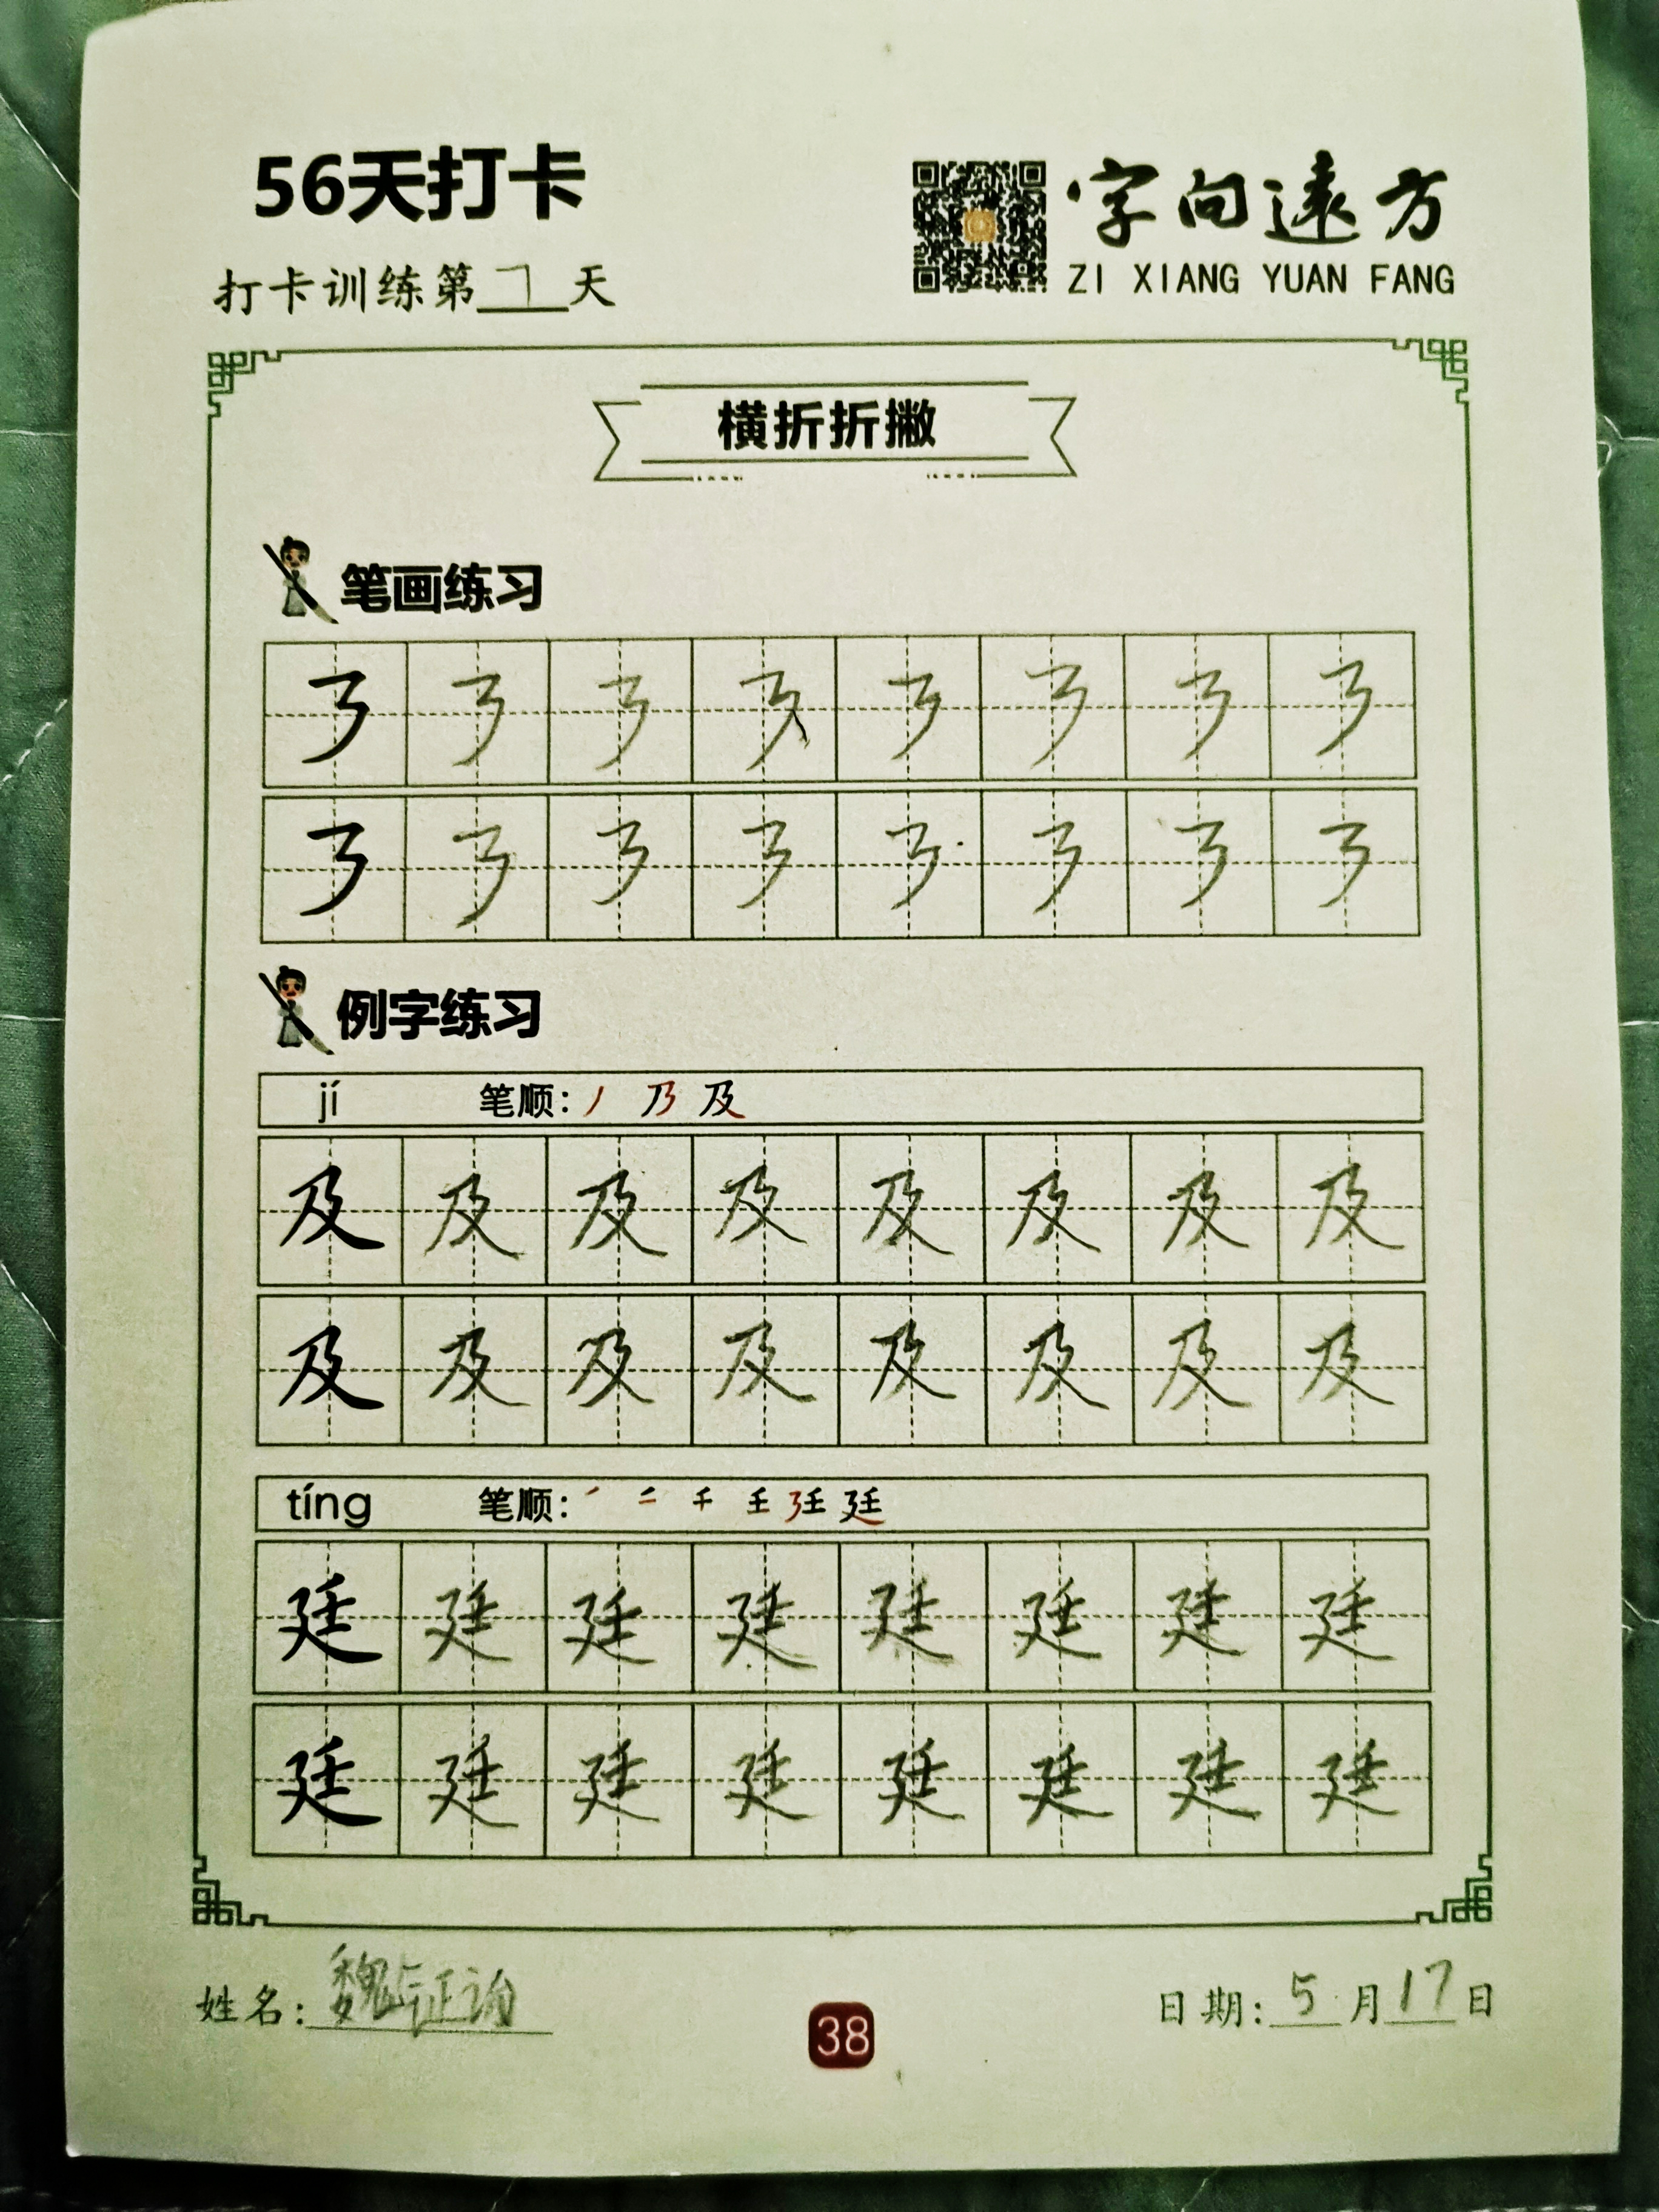 56天打卡
字向遠方
打卡训练第7天
ZI XIANG YUAN FANG
横折折撇
笔画练习
㇋ ㇋ ㇋ ㇋ ㇋ ㇋ ㇋ ㇋
㇋ ㇋ ㇋ ㇋ ㇋ ㇋ ㇋ ㇋
例字练习
jí 笔顺: 丿 乃 及
及 及 及 及 及 及 及 及
及 及 及 及 及 及 及 及
tíng 笔顺:
廷 廷 廷 廷 廷 廷 廷 廷
廷 廷 廷 廷 廷 廷 廷 廷
姓名: 魏
38
日期: 5月17日